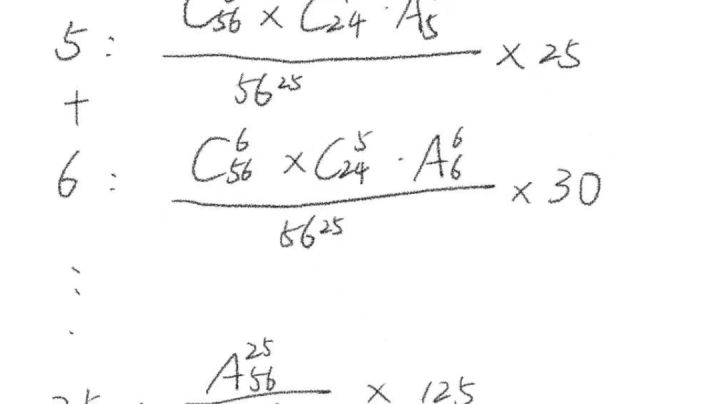 5: C₅₆ × C₂₄ · A₅ / 56²⁵ × 25
+
6: C₅₆⁶ × C₂₄⁵ · A₆⁶ / 56²⁵ × 30
⋮
A₅₆²⁵ × 125